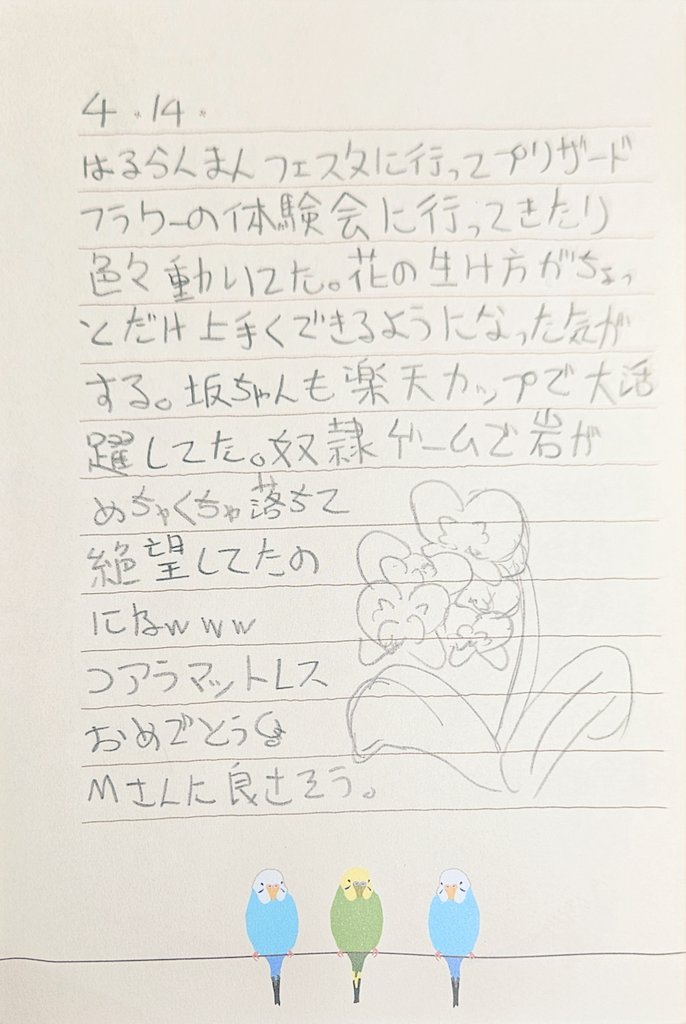 4.14.
はるらんまんフェスタに行ってプリザード
フラワーの体験会に行ってきたり
色々動いてた。花の生け方がちょっ
とだけ上手くできるようになった気が
する。坂ちゃんも楽天カップで大活
躍してた。奴隷ゲームで岩が
めちゃくちゃ落ちて
絶望してたの
になwww
コアラマットレス
おめでとう
Mさんに良さそう。